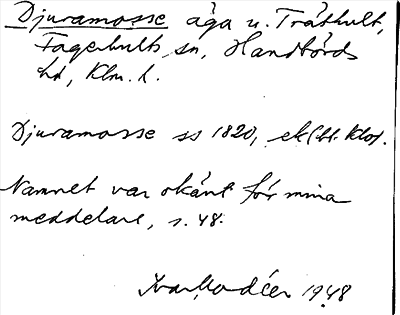 Djuramosse äga u. Tråthult,
Fagerhults sn, Handbörds
hd, Klm. l.
Djuramosse ss 1820, ek (st. Klof.
Namnet var okänt för mina
meddelare, s. 48.
Ivar Modéer 1948